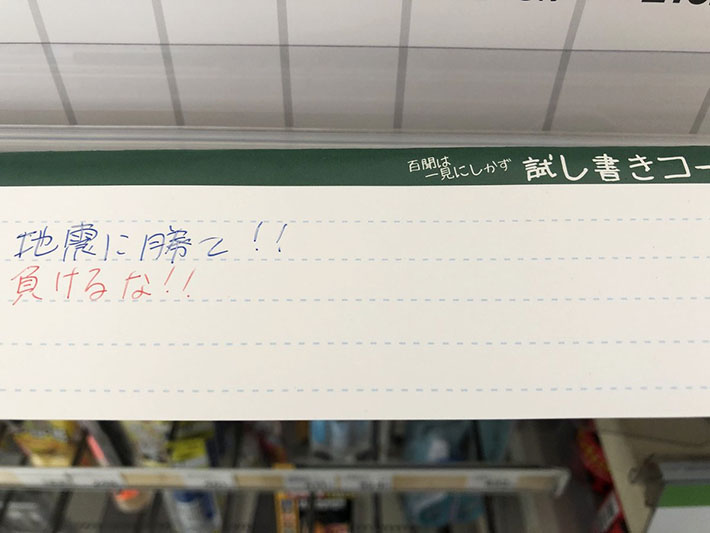 百聞は
一見にしかず
試し書きコー
地震に勝て!!
負けるな!!